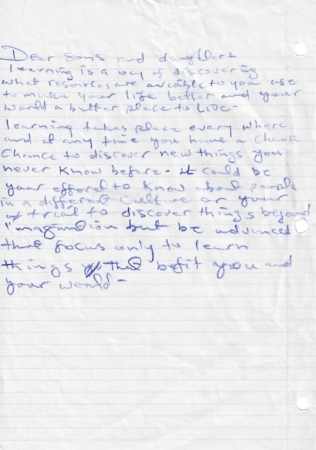 Dear sons and daughters
Learning is a way of discovering
what resources are available to you use
to make your life better and your
world a better place to live.
Learning takes place every where
and at any time you have a chance
chance to discover new things you
never know before. It could be
your effored to know about people
in a different culture or your
trial to discover things beyond
imagination but be advanced
that focus only to learn
things that befit you and
your world.